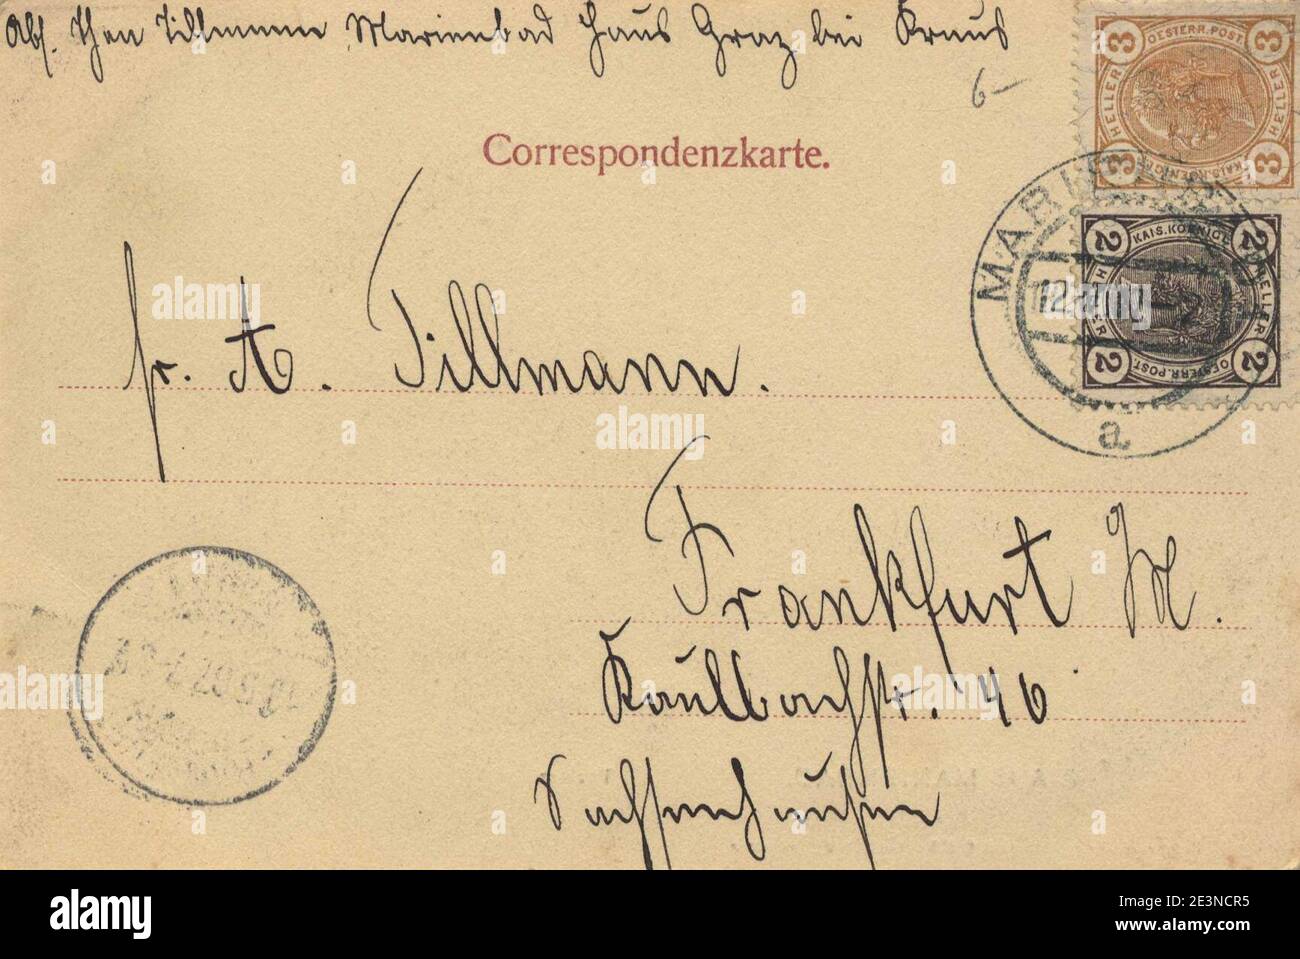 Abs. Theo Tillmann Marienbad Haus Graz bei Kraus
6-
3 OESTERR. POST. 3
HELLER HELLER
3 KAIS. KOENIGL. 3
Correspondenzkarte.
MARIENBAD
2 KAIS. KOENIGL. 2
HELLER HELLER
2 OESTERR. POST. 2
a
Fr. A. Tillmann.
Frankfurt M.
Kaulbachstr. 46
Sachsenhausen
alamy
Image ID: 2E3NCR5
www.alamy.com